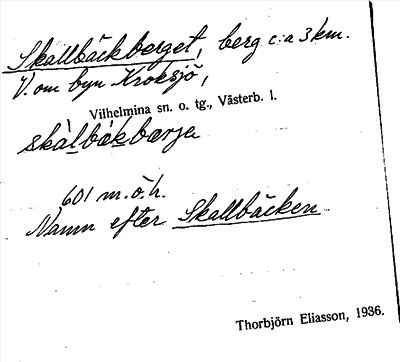 Skallbäckberget, berg c:a 3 km.
V. om byn Kroksjö,
Vilhelmina sn. o. tg., Västerb. l.
skàlbákbærje
601 m.ö.h.
Namn efter Skallbäcken
Thorbjörn Eliasson, 1936.